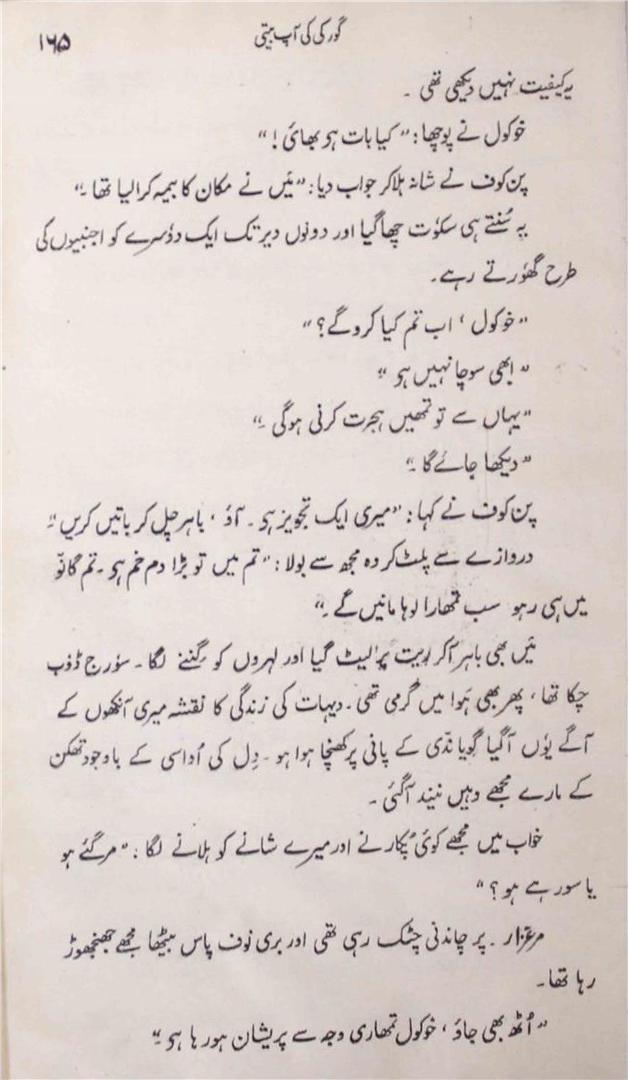 گورکی کی آپ بیتی
۱۶۵
یہ کیفیت نہیں دیکھی تھی ۔
خوکول نے پوچھا : ”کیا بات ہو بھائ !“
پن کوف نے شانہ ہلا کر جواب دیا : ”میں نے مکان کا بیمہ کرا لیا تھا ۔“
یہ سُنتے ہی سکوٗت چھا گیا اور دونوں دیر تک ایک دوٗسرے کو اجنبیوں کی
طرح گھوٗرتے رہے ۔
”خوکول ، اب تم کیا کروگے ؟“
”ابھی سوچا نہیں ہو“
”یہاں سے تو تمھیں ہجرت کرنی ہوگی ۔“
”دیکھا جائے گا ۔“
پن کوف نے کہا : ”میری ایک تجویز ہو ۔ آؤ ، باہر چل کر باتیں کریں“۔
دروازے سے پلٹ کر وہ مجھ سے بولا : ”تم میں تو بڑا دم خم ہو ۔ تم گانوٓ
میں ہی رہو سب تمھارا لوہا مانیں گے ۔“
میں بھی باہر آکر ریت پر لیٹ گیا اور لہروں کو گننے لگا ۔ سوٗرج ڈوٗب
چکا تھا ، پھر بھی ہَوا میں گرمی تھی ۔ دیہات کی زندگی کا نقشہ میری آنکھوں کے
آگے یوٗں آگیا گویا ندّی کے پانی پر کھنچا ہوا ہو ۔ دِل کی اُداسی کے باوجود تھکن
کے مارے مجھے وہیں نیند آگئی ۔
خواب میں مجھے کوئی پُکارنے اور میرے شانے کو ہلانے لگا : ”مر گئے ہو
یا سو رہے ہو ؟“
مرغزار ۔ پر چاندنی چٹک رہی تھی اور بری نوف پاس بیٹھا مجھے جھنجھوڑ
رہا تھا ۔
”اُٹھ بھی جاؤ ، خوکول تمھاری وجہ سے پریشان ہو رہا ہو ۔“